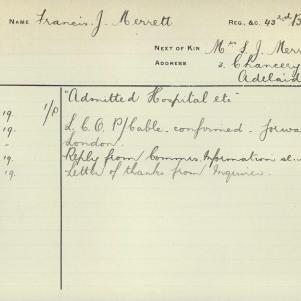 NAME Francis. J. Merrett
REG. &C. 43rd B
NEXT OF KIN Mrs S. J. Merr
ADDRESS 3. Chancery
Adelaid
"Admitted Hospital etc"
19. 1/P
19. L.C.O. P/Cable. confirmed. forwa
" London.
19. Reply from Commrs. Information se
19. Letter of thanks from Inquirer.